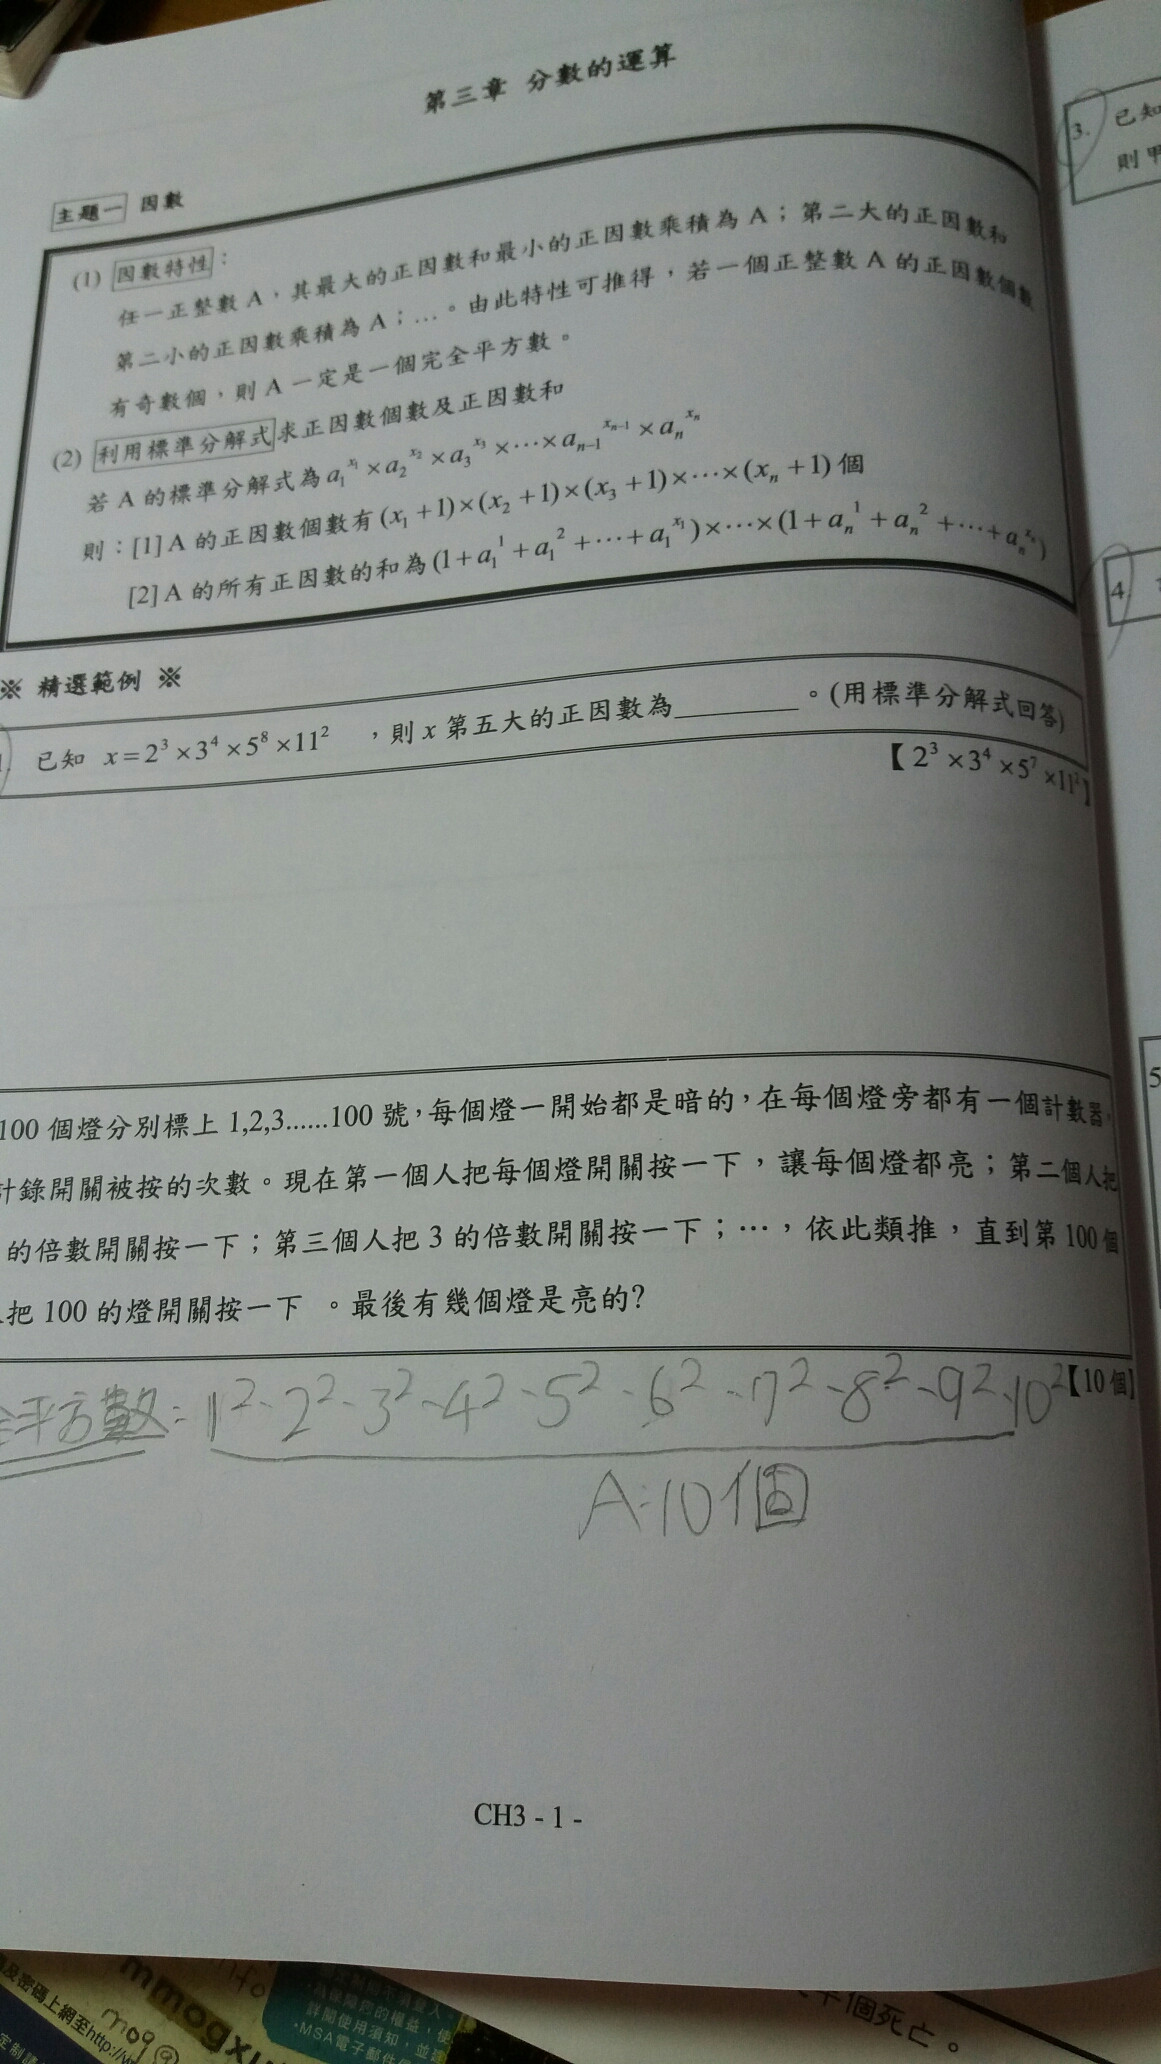 第三章 分數的運算
主題一 因數
(1) 因數特性：
任一正整數 A，其最大的正因數和最小的正因數乘積為 A；第二大的正因數和
第二小的正因數乘積為 A；…。由此特性可推得，若一個正整數 A 的正因數個數
有奇數個，則 A 一定是一個完全平方數。
(2) 利用標準分解式求正因數個數及正因數和
若 A 的標準分解式為 a₁^x₁ × a₂^x₂ × a₃^x₃ × ⋯ × aₙ₋₁^xₙ₋₁ × aₙ^xₙ
則：[1] A 的正因數個數有 (x₁+1)×(x₂+1)×(x₃+1)×⋯×(xₙ+1) 個
[2] A 的所有正因數的和為 (1+a₁^1+a₁^2+⋯+a₁^x₁)×⋯×(1+aₙ^1+aₙ^2+⋯+aₙ^xₙ)
※ 精選範例 ※
1. 已知 x=2³×3⁴×5⁸×11² ，則 x 第五大的正因數為________。(用標準分解式回答)
【2³×3⁴×5⁷×11²】
100 個燈分別標上 1,2,3......100 號，每個燈一開始都是暗的，在每個燈旁都有一個計數器，
計錄開關被按的次數。現在第一個人把每個燈開關按一下，讓每個燈都亮；第二個人把
的倍數開關按一下；第三個人把 3 的倍數開關按一下；⋯，依此類推，直到第 100 個
把 100 的燈開關按一下 。最後有幾個燈是亮的?
【10 個】
全平方數：1²、2²、3²、4²、5²、6²、7²、8²、9²、10²
A:10個
CH3 - 1 -
3. 已知
則甲
4.
5
及密碼上網至http://
mmogxu
詳閱使用須知，並
•MSA電子郵件
個死亡。